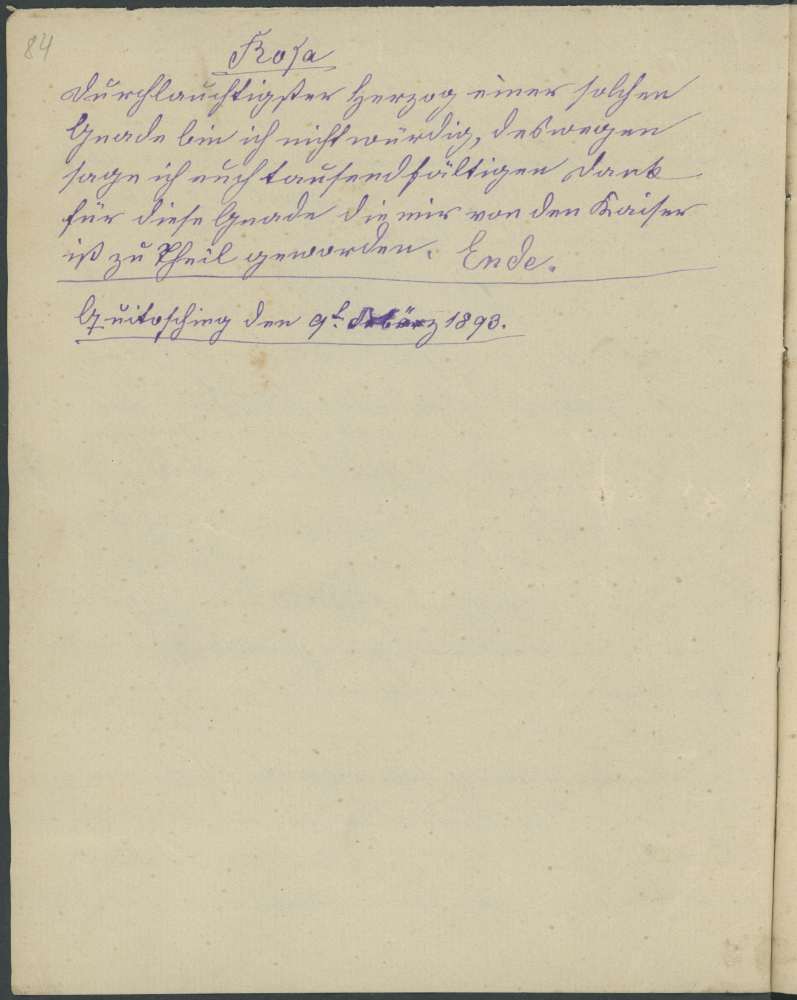 84
Rosa
Durchlauchtigster Herzog einer solchen
Gnade bin ich nicht würdig, deswegen
sage ich euch tausendfältigen Dank
für diese Gnade die mir von den Kaiser
ist zu Theil geworden. Ende.
den 9t März 1893.